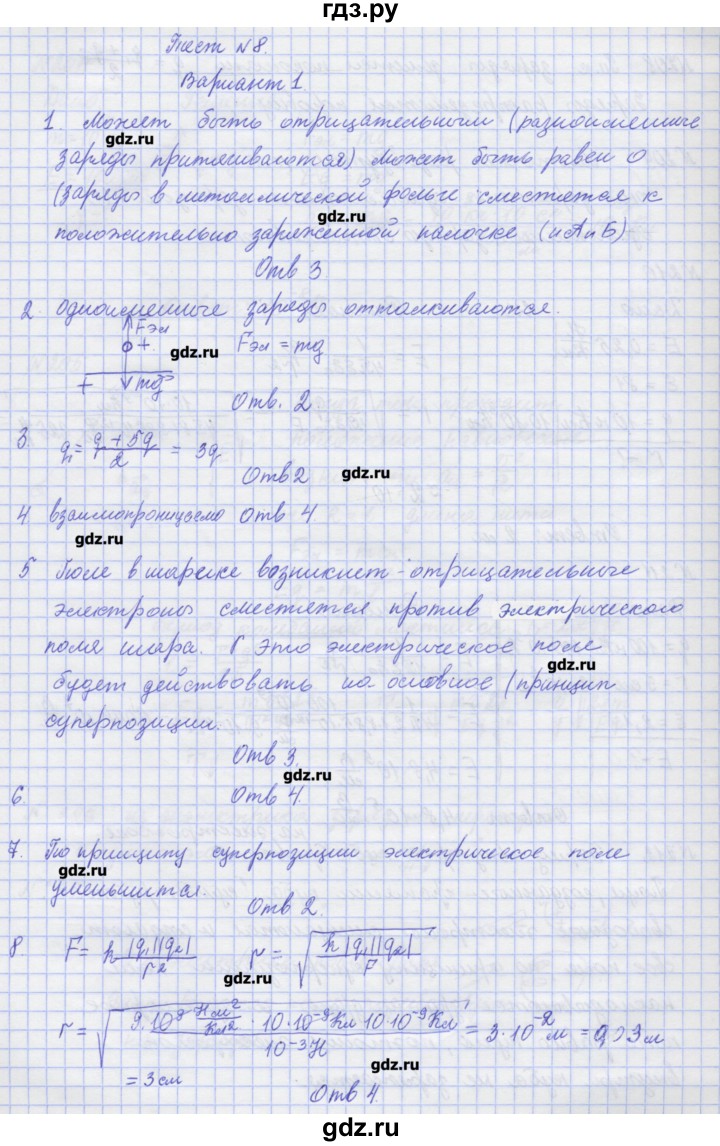 гдз.ру
Тест №8.
Вариант 1
1. Может быть отрицательным (разноименные
заряды притягиваются) может быть равен 0
(заряды в металлической фольге сместятся к
положительно заряженной палочке (и А и Б)
Отв 3
2. одноименные заряды отталкиваются.
Fэл
+
Fэл = mg
+
mg
Отв. 2
3. q₁ = (q + 5q)/2 = 3q
Отв 2
4. взаимопроницаемо Отв 4
5 Поле в шарике возникнет - отрицательные
электроны сместятся против электрического
поля шара. Это электрическое поле
будет действовать на основное (принцип
суперпозиции.
Отв 3.
6. Отв 4.
7. По принципу суперпозиции электрическое поле
уменьшится.
Отв 2.
8. F = k |q₁||q₂| / r² r = √(k |q₁||q₂| / F)
r = √(9·10⁹ Н м²/Кл² · 10·10⁻⁹ Кл 10·10⁻⁹ Кл / 10⁻³ Н) = 3·10⁻² м = 0,03 м
= 3 см
Отв 4.
gdz.ru
gdz.ru
gdz.ru
gdz.ru
gdz.ru
gdz.ru
gdz.ru
gdz.ru
gdz.ru
gdz.ru
gdz.ru